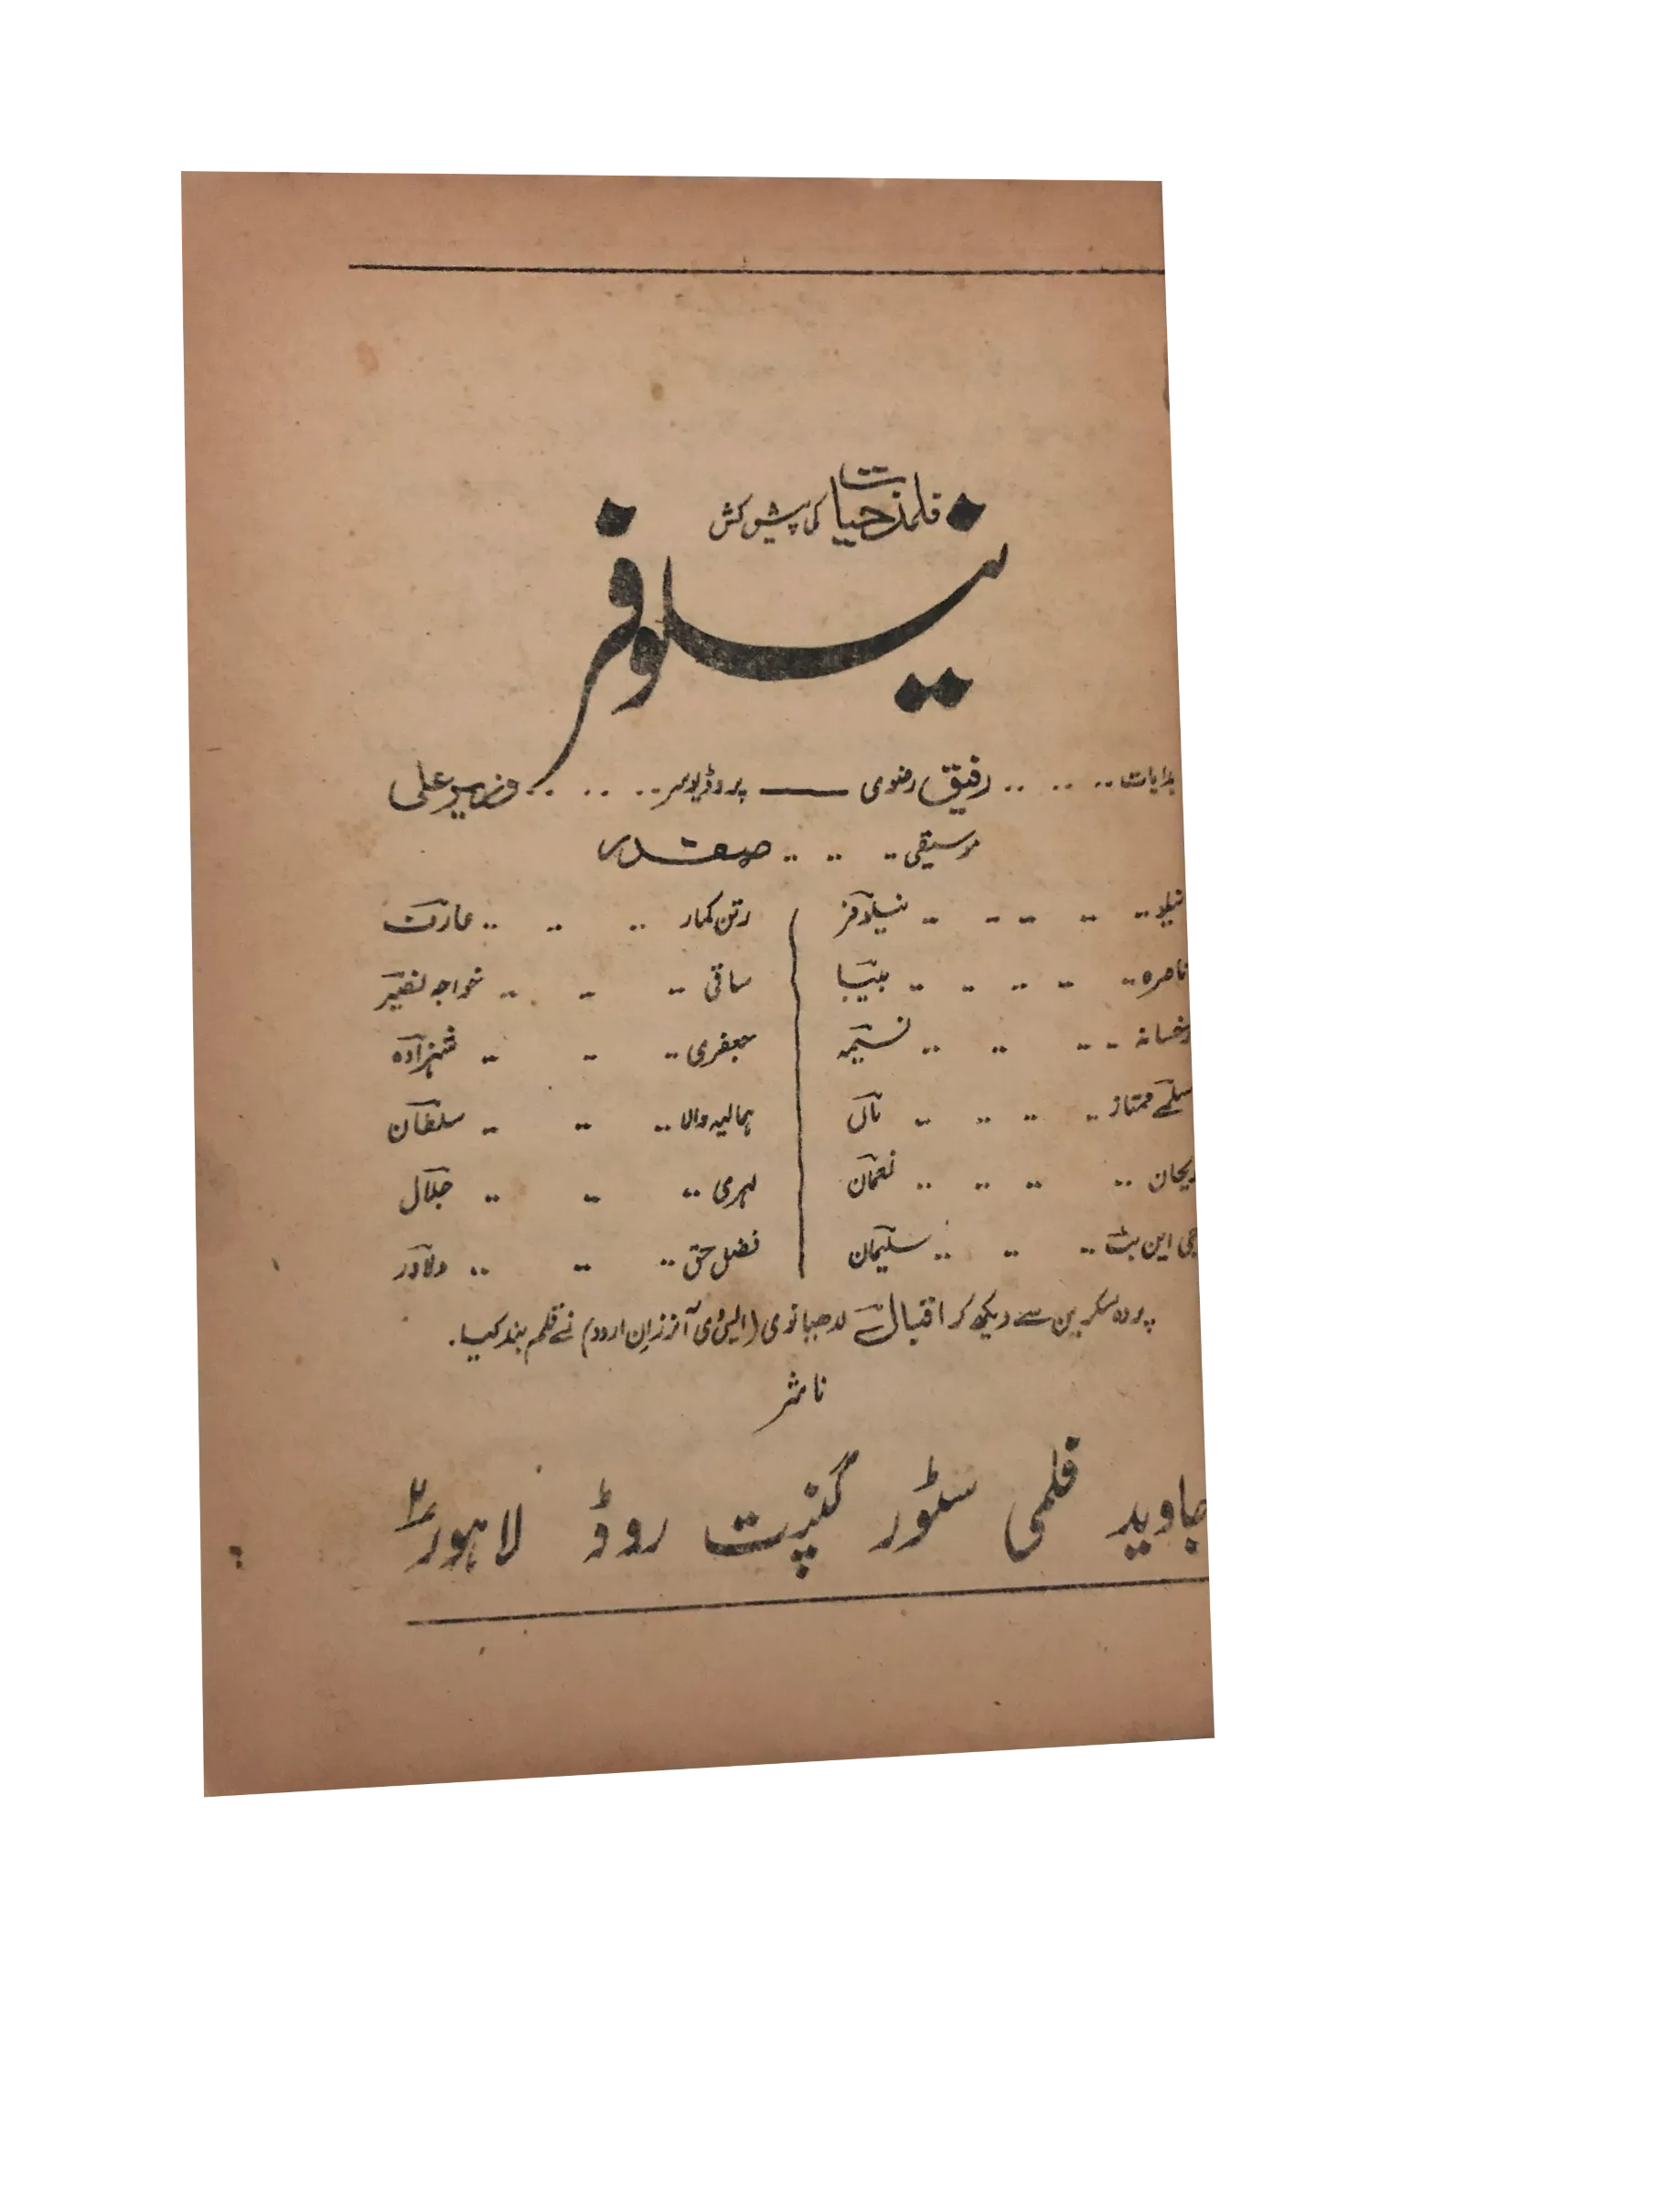 فلمز حیات کی پیش کش
نیلوفر
ہدایات .. .. .. رفیق رضوی ــــ پروڈیوسر .. .. .. وزیر علی
موسیقی .. .. .. صفدر
نیلو .. .. .. .. .. نیلوفر
ناصرہ .. .. .. .. .. بیبا
رخسانہ .. .. .. .. نسیمہ
سلمےٰ ممتاز .. .. .. .. نائی
ریحان .. .. .. .. نعمان
جی این بٹ .. .. .. سلیمان
رتن کمار .. .. .. عارف
ساقی .. .. .. خواجہ نصیر
جعفری .. .. .. شہزادہ
ہمالیہ والا .. .. .. سلطان
لہری .. .. .. جلال
فضل حق .. .. .. دلاور
پردہ سکرین سے دیکھ کر اقبال لدھیانوی (ایس وی آنرز ان اردو) نے قلم بند کیا۔
ناشر
جاوید فلمی سٹور گنپت روڈ لاہور ۲